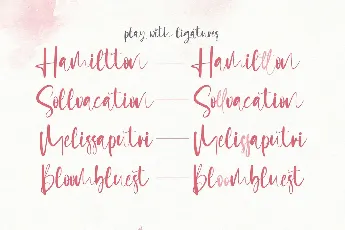 play with ligatures
Hamiltton Hamillton
Sollvacation Sollvacation
Melissaputri Melissaputri
Bloombluest Bloombluest